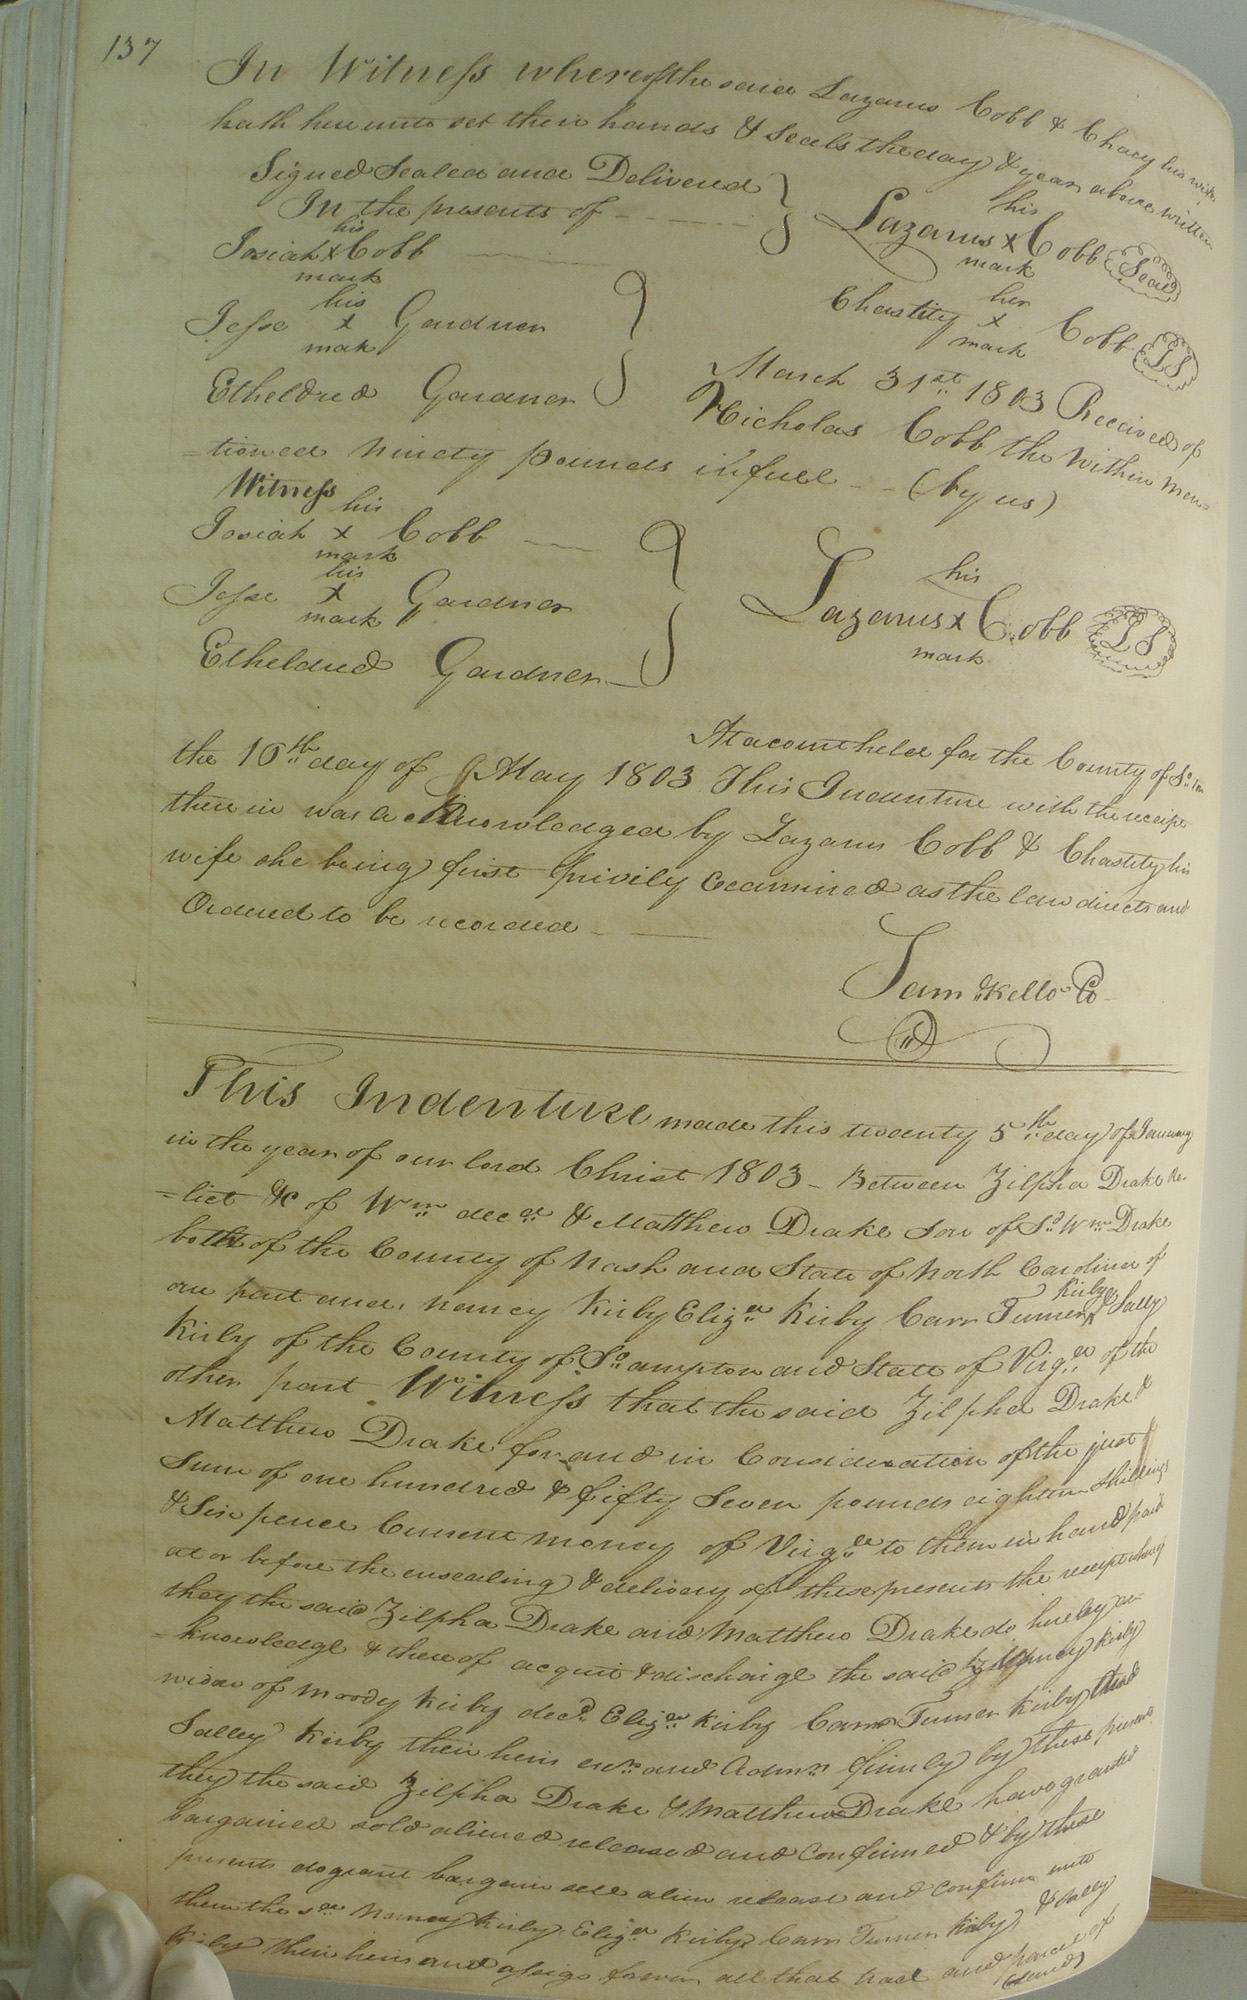 137
In Witness whereof the said Lazarus Cobb & Chacy his wife
hath hereunto set their hands & Seals the day & year above written
Signed Sealed and Delivered
In the presents of
his
Lazarus x Cobb Seal
mark
his
Josiah x Cobb
mark
her
Chastity x Cobb LS
mark
his
Jesse x Gardner
mak
Etheldred Gardner
March 31st 1803 Received of
Nicholas Cobb the within men-
=tioned ninety pounds infull -- (by us)
Witness
his
Josiah x Cobb
mark
his
Jesse x Gardner
mark
Etheldred Gardner
his
Lazarus x Cobb LS
mark
At a court held for the County of So. ton
the 16th day of May 1803 This Indenture with the receipt
there in was acknowledged by Lazarus Cobb & Chastity his
wife she being first privily examined as the law directs and
Ordered to be recorded
Sam Kello
This Indenture made this twenty 5th day of January
in the year of our lord Christ 1803 - Between Zilpha Drake Re-
=lict &c of Wm decd & Matthew Drake Son of Sd Wm Drake
both of the County of Nash and State of North Carolina of
on part and, Nancy Kirby Eliza Kirby Carr Turner Kirby & Sally
Kirby of the County of So.ampton and State of Virga of the
other part Witness that the said Zilpha Drake &
Matthew Drake for and in Consideration of the just
Sum of one hundred & fifty Seven pounds eighteen Shillings
& Six pence Current money of Virga to them in hand paid
at or before the ensealing & delivery of these presents the receipt whereof
they the said Zilpha Drake and Matthew Drake do hereby ac-
=knowledge & thereof acquit & discharge the said Nancy Kirby
widow of Moody Kirby decd Eliza Kirby Carr Turner Kirby
Salley Kirby their heirs exrs and Admrs firmly by these presents
they the said Zilpha Drake & Matthew Drake have granted
bargained sold aliened released and confirmed & by these
presents do grant bargain sell alien release and confirm unto
them the sd Nancy Kirby Eliza Kirby Carr Turner Kirby & Sally
Kirby their heirs and assigs forever all that tract and parcel of
(Land)